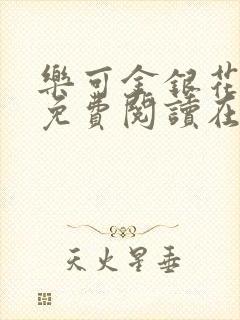 樂可金銀花
免費閱讀在
天火星垂